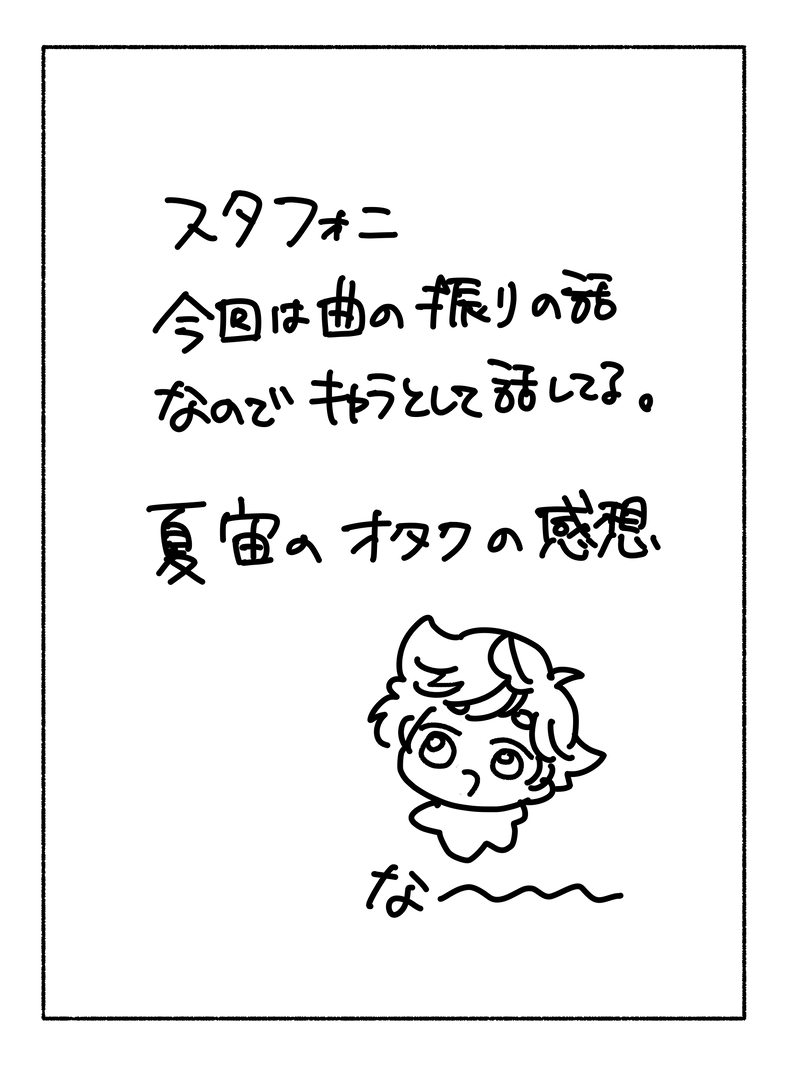 スタフォニ
今回は曲の振りの話
なのでキャラとして話してる。
夏宙のオタクの感想
な〜〜〜